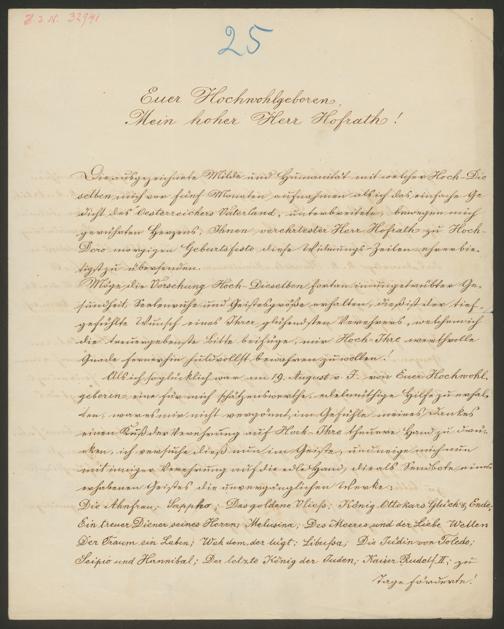 H. I. N. 32941
25
Euer Hochwohlgeboren,
Mein hoher Herr Hofrath!
Die ausgezeichnete Milde und Humanität mit welcher Hoch-Die
selben mich vor fünf Monaten aufnahmen als ich das einfache Ge
dicht des Oesterreichers Vaterland, unterbreitete, bewogen mich
gerührten Herzens, Ihnen verehrtester Herr Hofrath zu Hoch-
Dero morgigen Geburtsfeste diese Widmungs-Zeilen ehrerbie-
tigst zu übersenden.
Möge die Vorsehung Hoch-Dieselben fortan in ungetrübter Ge-
sundheit Seelenruhe und Geistesgröße erhalten, dieß ist der tief-
gefühlte Wunsch eines Ihrer glühendsten Verehrers, welchem ich
die ergebenste Bitte beifüge, mir Hoch-Ihre wertvolle
Gnade fernerhin huldvollst bewahren zu wollen!
Als ich so glücklich war am 19. August v. J. von Euer Hochwohl-
geboren eine für mich schätzenswerthe, edelmüthige Hilfe zu erhal-
ten, war es mir nicht vergönnt, im Gefühle meines Dankes
einen Kuß der Verehrung auf Hoch-Ihre theuere Hand zu drü-
cken, ich versuche dieß nun im Geiste, und neige mich nun
mit inniger Verehrung auf die edle Hand, die als Sendbote eines
erhabenen Geistes die unvergänglichen Werke:
Die Ahnfrau; Sappho; Das goldene Vließ; König Ottokars Glück u. Ende,
Ein treuer Diener seines Herrn; Melusina; Des Meeres und der Liebe Wellen
Der Traum ein Leben; Weh dem, der lügt; Libußa; Die Jüdin von Toledo;
Scipio und Hannibal; Der letzte König der Juden; Kaiser Rudolf II; zu
Tage förderte!